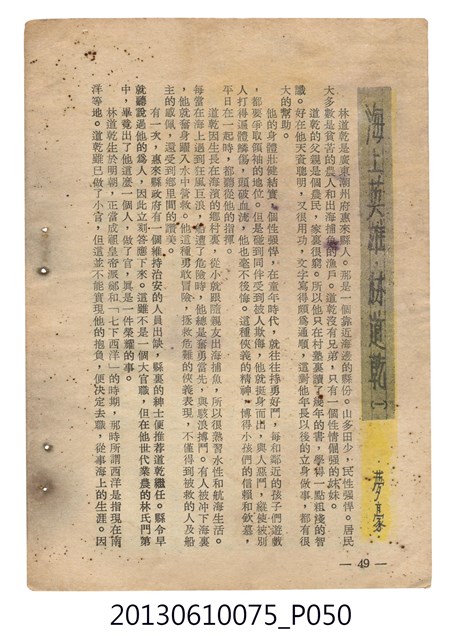 海上英雄‧林道乾(一)
夢豪
林道乾是廣東潮州府惠來縣人。那是一個靠近海邊的縣份。山多田少,民性強悍。居民
大多數是貧苦的農人和出海捕魚的漁戶。道乾沒有兄弟,只有一個性情倔強的妹妹。
道乾的父親是個農民,家裏很窮。所以他只在村塾裏讀了幾年的書,學得一點粗淺的智
識。好在他天資聰明,又很用功,文字寫得頗爲通順,這對他年長以後的立身做事,都有很
大的幫助。
他的身體壯健結實,個性強悍,在童年時代,就往往持勇好鬥,每和鄰近的孩子們遊戲
,都要爭取領袖的地位。但是碰到同伴受到被人欺侮,他就挺身而出,與人惡鬥,縱使被別
人打得遍體鱗傷,頭破血流,他也毫不後悔。這種俠義的精神,博得小孩們的信賴和欽慕,
平日在一起時,都聽從他的指揮。
道乾因生長在海濱的鄉村裏,從小就跟隨親友出海捕魚,所以很熟習水性和航海生活。
每當在海上遇到狂風巨浪,船遭了危險時,他總是奮勇當先,與駭浪搏鬥。有人被冲下海裏
,他就奮身躍入水中營救。他這種勇敢冒險,拯救危難的俠義表現,不僅得到被救的人及船
主的感佩,還受到鄉里間的讚美。
有一次,惠來縣政府有一個維持治安的人員出缺,縣裏的紳士便推荐道乾繼任。縣令早
就聽說過他的爲人,因此立刻答應下來。這雖不是一個大官職,但在他世代業農的林氏門第
中,畢竟出了他這麼一個人,做了官,眞是一件榮耀的事。
林道乾生於明朝,正當成祖皇帝派鄭和「七下西洋」的時期,那時所謂西洋是指現在南
洋等地。道乾雖已做了小官,但這並不能實現他的抱負,便決定去職,從事海上的生涯。因
— 49 —
20130610075_P050